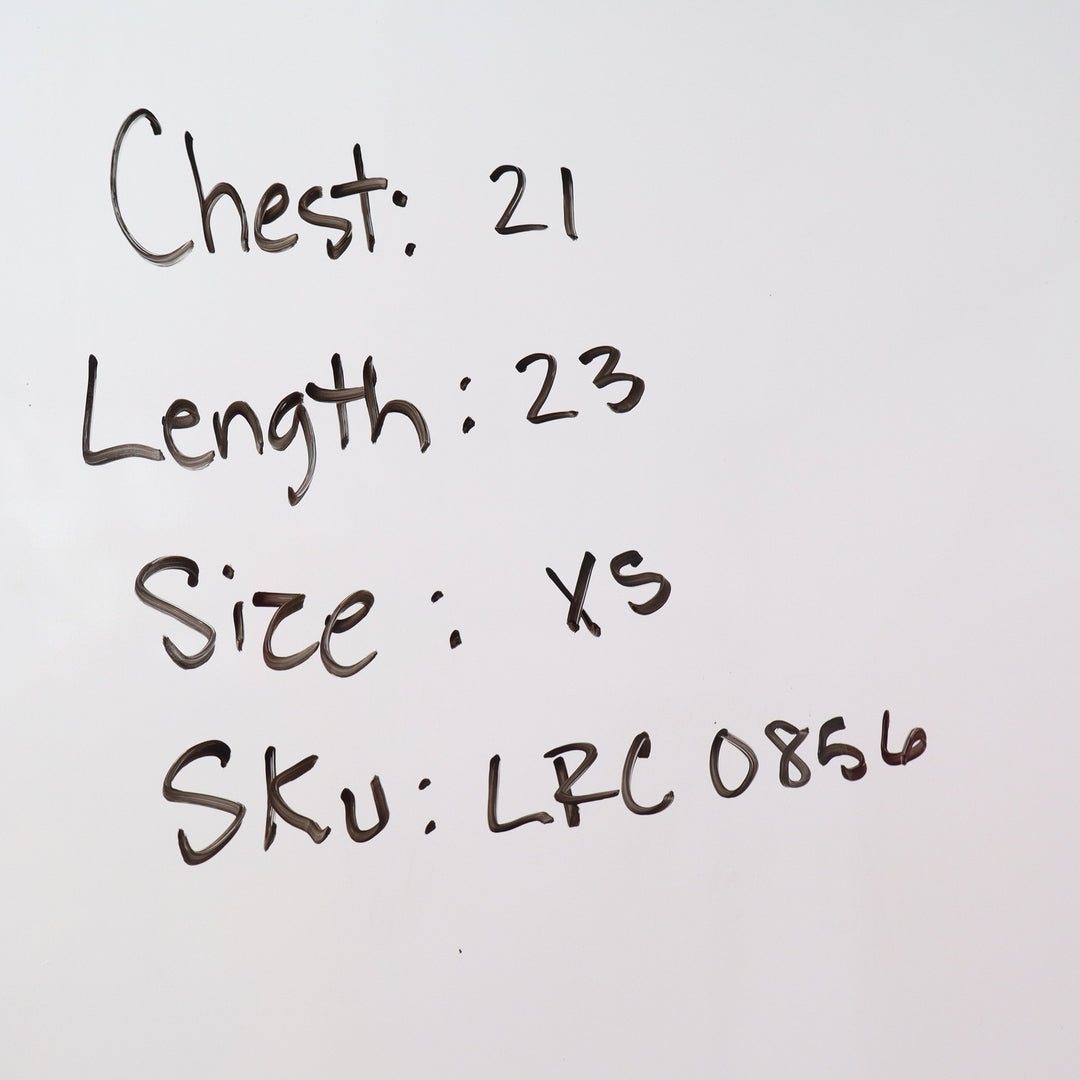 Chest: 21
Length: 23
Size: XS
SKU: LRC 0856